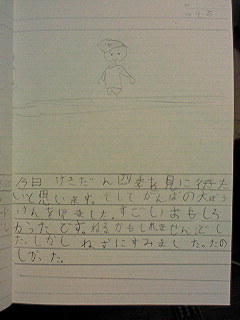 今日 げきだん四季を見に行きた
いと思います。そしてがんばの大ぼう
けんを見ました。すごいおもしろ
かったです。ねるかもしれませんでし
た。しかし ねずにすみました。たの
しかった。